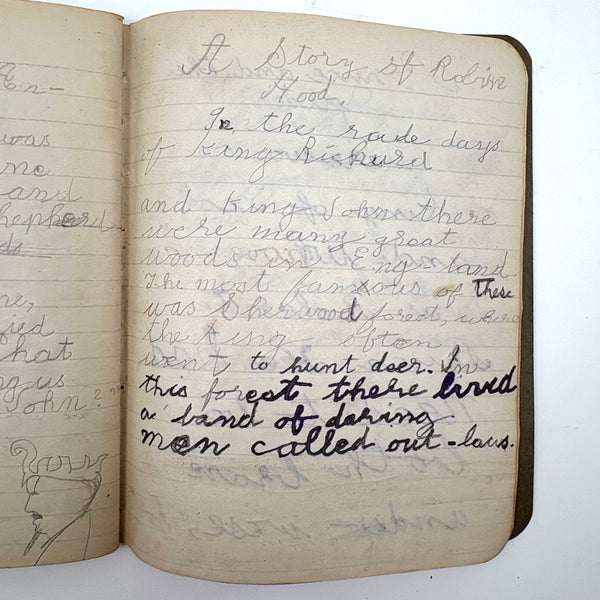 En-
was
and
shepherd
that
ng us
John?
A Story of Robin
Hood.
In the rude days
of King Richard
and King John there
were many great
woods in England.
The most famous of these
was Sherwood forest, where
the king often
went to hunt deer. In
this forest there lived
a band of daring
men called out-laws.